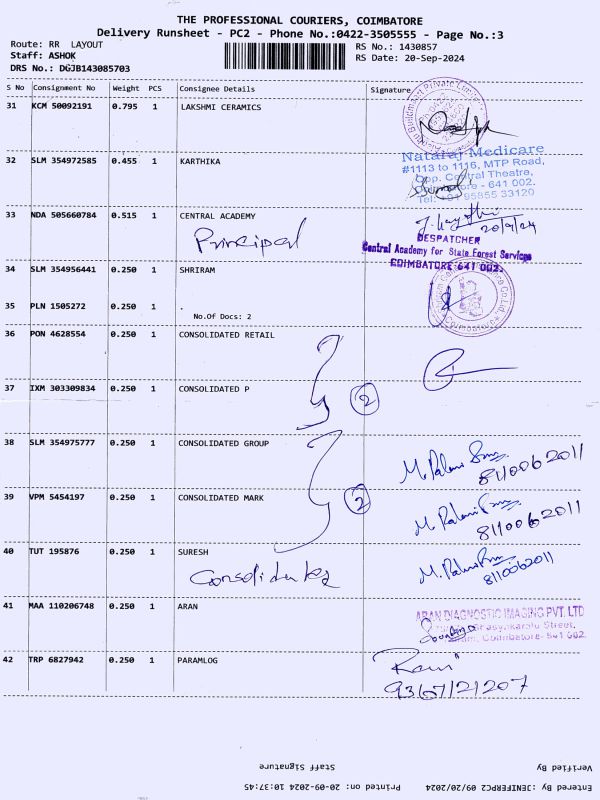 THE PROFESSIONAL COURIERS, COIMBATORE
Delivery Runsheet - PC2 - Phone No.:0422-3505555 - Page No.:3
Route: RR LAYOUT
RS No.: 1430857
Staff: ASHOK
RS Date: 20-Sep-2024
DRS No.: DGJB143085703
S No Consignment No Weight PCS Consignee Details Signature
31 KCM 50092191 0.795 1 LAKSHMI CERAMICS
Nataraj Medicare
#1113 to 1116, MTP Road,
Opp. Central Theatre,
Coimbatore - 641 002.
Tel: +91 95855 33120
32 SLM 354972585 0.455 1 KARTHIKA
33 NDA 505660784 0.515 1 CENTRAL ACADEMY
Principal
20/9/24
DESPATCHER
Central Academy for State Forest Services
COIMBATORE-641 002.
34 SLM 354956441 0.250 1 SHRIRAM
35 PLN 1505272 0.250 1
No.Of Docs: 2
36 PON 4628554 0.250 1 CONSOLIDATED RETAIL
37 IXM 303309834 0.250 1 CONSOLIDATED P
2
38 SLM 354975777 0.250 1 CONSOLIDATED GROUP
8110062011
39 VPM 5454197 0.250 1 CONSOLIDATED MARK
2
8110062011
40 TUT 195876 0.250 1 SURESH
8110062011
41 MAA 110206748 0.250 1 ARAN
ARAN DIAGNOSTIC IMAGING PVT. LTD
Street,
Coimbatore- 641 002.
42 TRP 6827942 0.250 1 PARAMLOG
Ram
9367121207
Staff Signature
Verified By
Printed on: 20-09-2024 10:37:45
Entered By :JENIFERPC2 09/20/2024